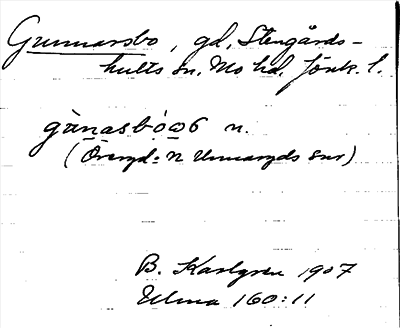 Gunnarsbo, gd, Stengårds-
hults sn. Mo hd. Jönk. l.
gànasbó n.
(Öreryd: N Unnaryds snr)
B. Karlgren 1907
Ulma 160:11